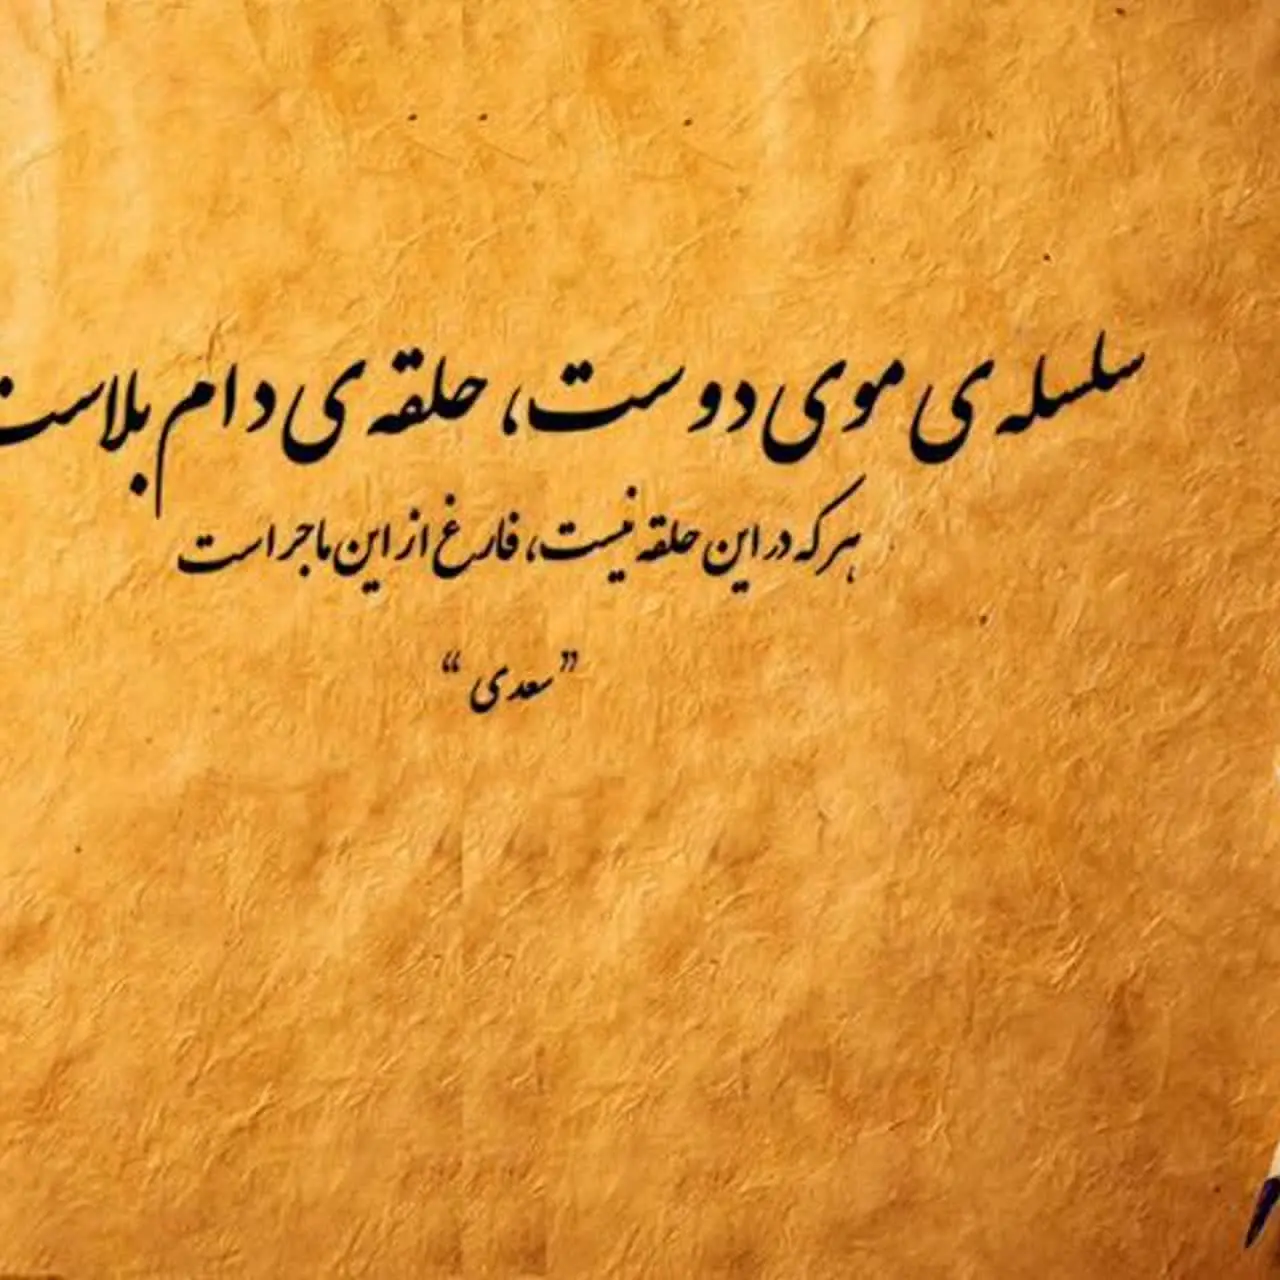 سلسله‌ی موی دوست، حلقه‌ی دام بلاست
هر که در این حلقه نیست، فارغ از این ماجراست
”سعدی“